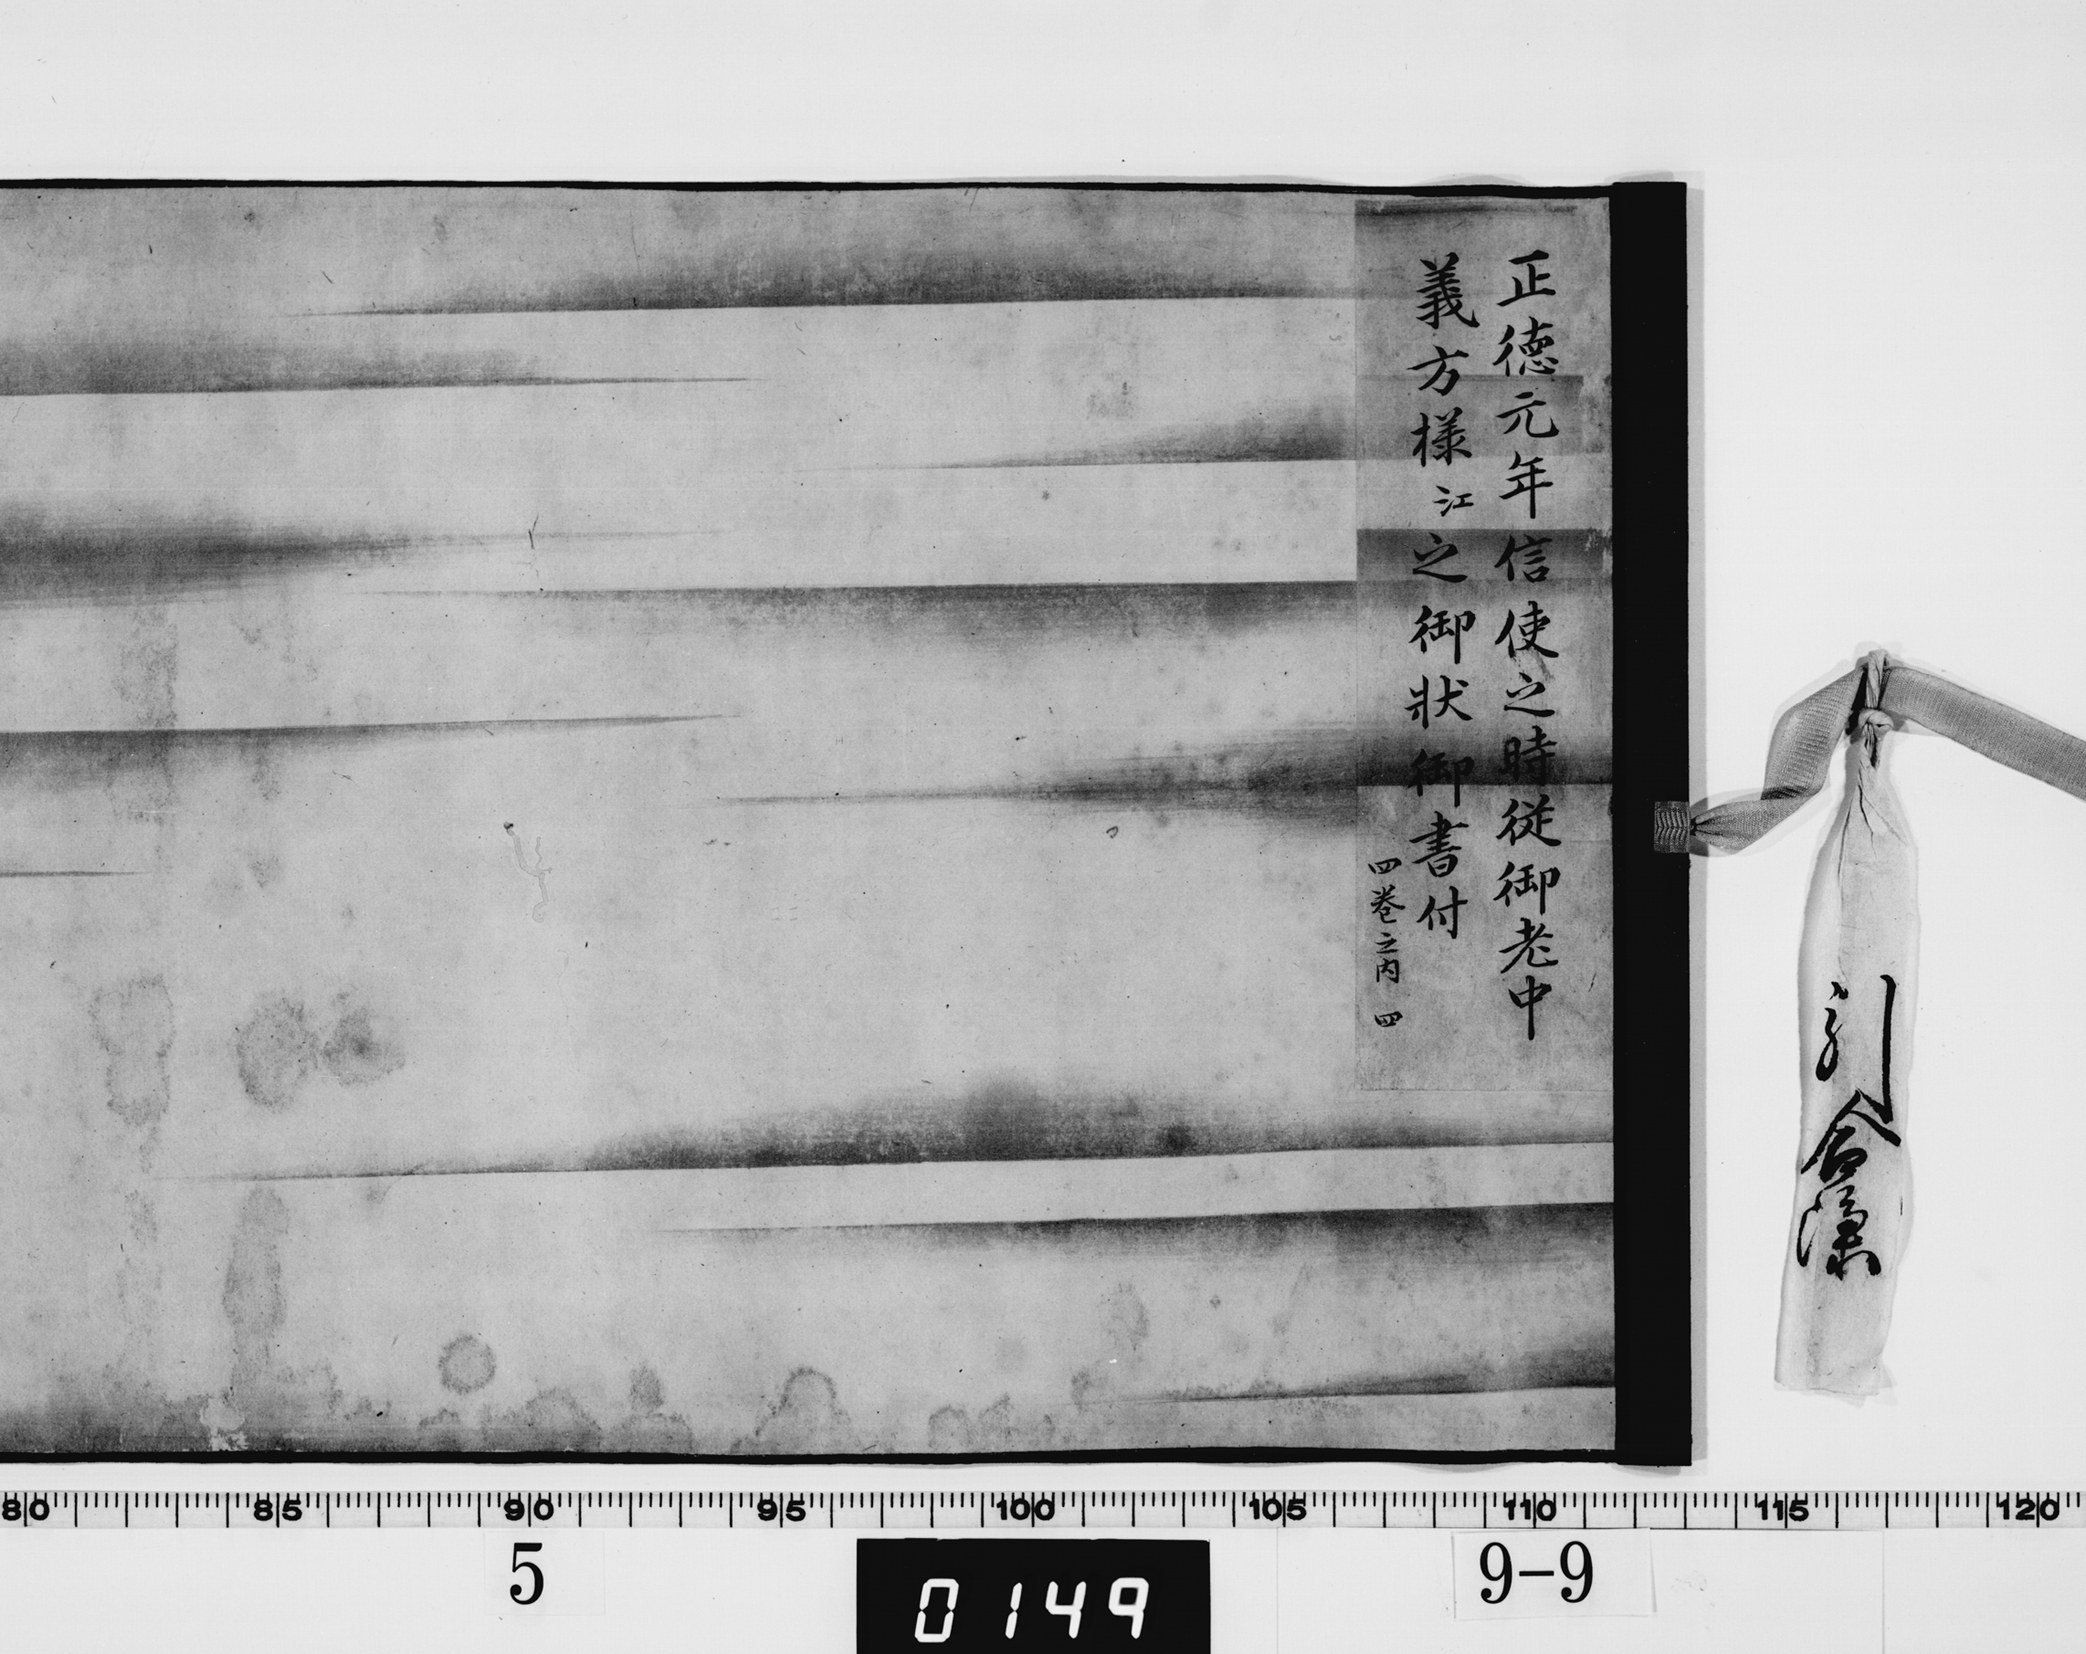 正徳元年信使之時従御老中
義方様江之御状御書付
四巻之内 四
引合済
80 85 90 95 100 105 110 115 120
5
0149
9-9